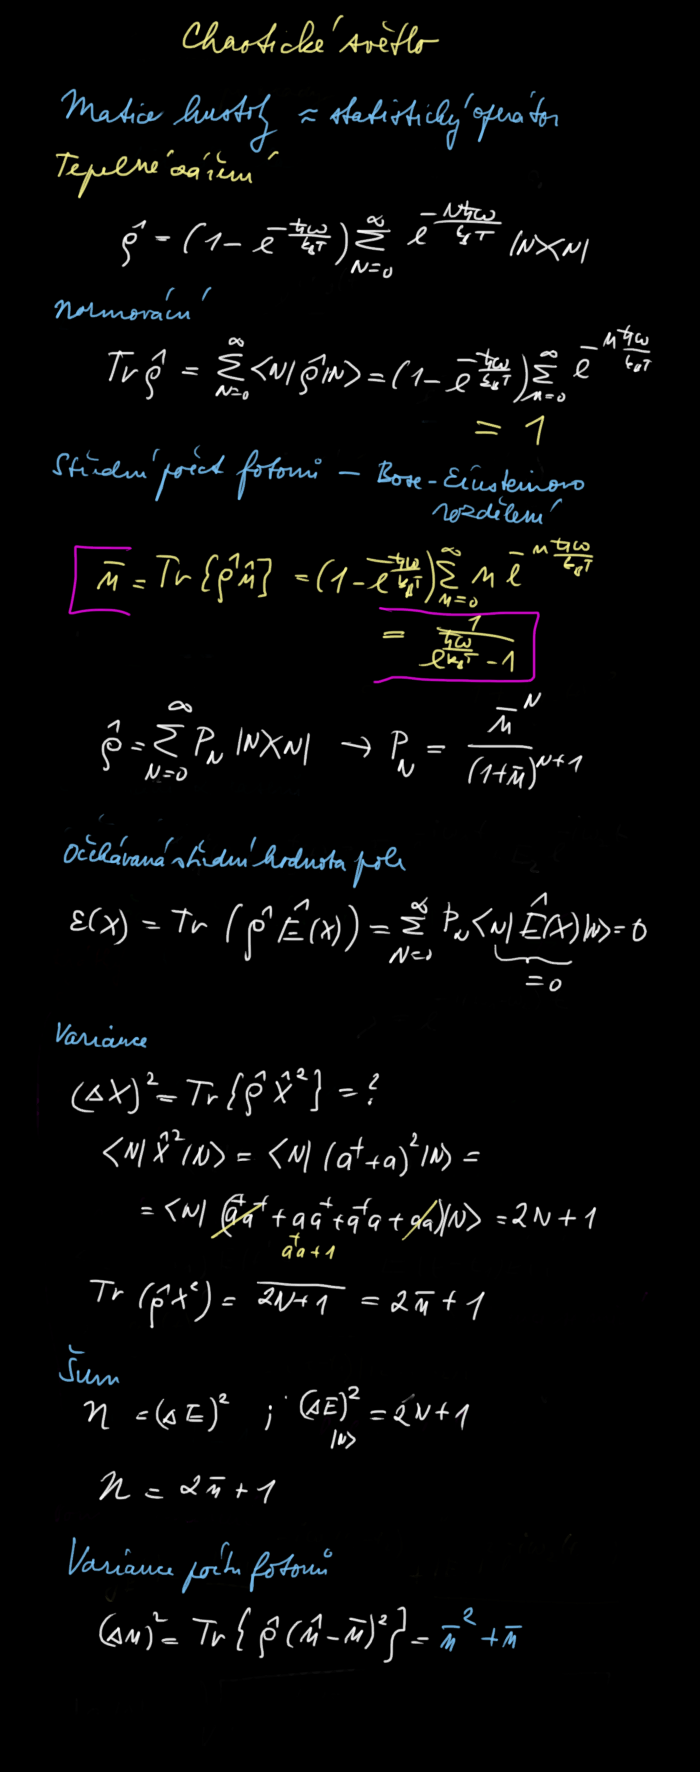 Chaotické světlo
Matice hustoty ≈ statistický operátor
Tepelné záření
ρ̂ = (1 - e^{-ħω/k_BT}) ∑_{N=0}^{∞} e^{-Nħω/k_BT} |N⟩⟨N|
Normování
Tr ρ̂ = ∑_{N=0}^{∞} ⟨N| ρ̂ |N⟩ = (1 - e^{-ħω/k_BT}) ∑_{n=0}^{∞} e^{-nħω/k_BT}
= 1
Střední počet fotonů – Bose-Einsteinovo
rozdělení
n̄ = Tr {ρ̂ n̂} = (1 - e^{-ħω/k_BT}) ∑_{n=0}^{∞} n e^{-nħω/k_BT}
= 1/(e^{ħω/k_BT} - 1)
ρ̂ = ∑_{N=0}^{∞} P_N |N⟩⟨N| → P_N = n̄^N/(1+n̄)^{N+1}
Očekávaná střední hodnota pole
ε(x) = Tr (ρ̂ Ê(x)) = ∑_{N=0}^{∞} P_N ⟨N| Ê(x) |N⟩ = 0
= 0
Variance
(ΔX)² = Tr {ρ̂ X̂²} = ?
⟨N| X̂² |N⟩ = ⟨N| (a⁺+a)² |N⟩ =
= ⟨N| (a⁺a⁺ + aa⁺ + a⁺a + aa) |N⟩ = 2N+1
a⁺a+1
Tr (ρ̂X²) = \overline{2N+1} = 2n̄ + 1
Šum
n = (ΔE)² ; (ΔE)²_{|N⟩} = 2N+1
n = 2n̄ + 1
Variance počtu fotonů
(Δn)² = Tr {ρ̂ (n̂ - n̄)²} = n̄² + n̄